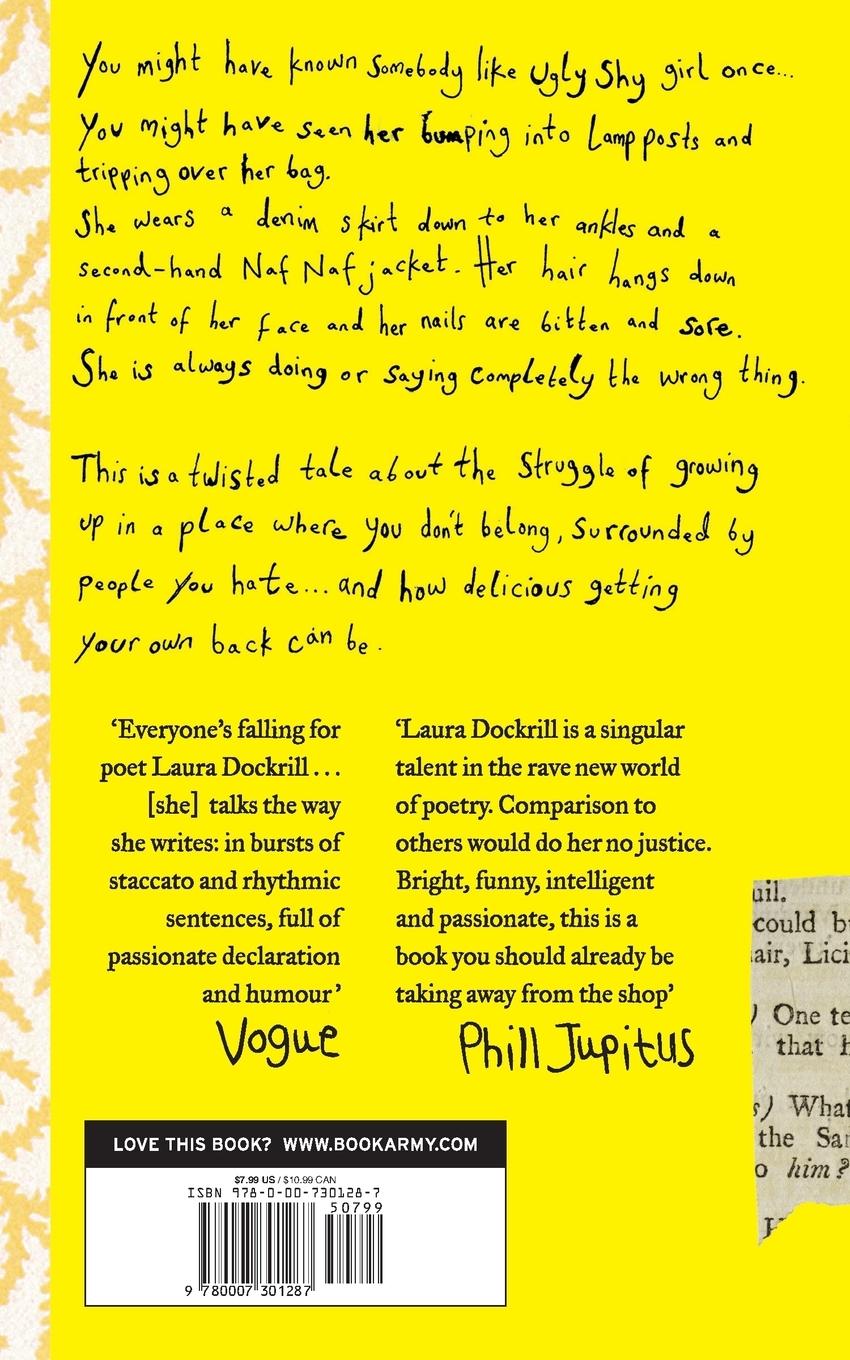 You might have known somebody like Ugly Shy girl once...
You might have seen her bumping into Lamp posts and
tripping over her bag.
She wears a denim skirt down to her ankles and a
second-hand Naf Naf jacket. Her hair hangs down
in front of her face and her nails are bitten and sore.
She is always doing or saying completely the wrong thing.
This is a twisted tale about the struggle of growing
up in a place where you don't belong, surrounded by
people you hate... and how delicious getting
your own back can be.
‘Everyone’s falling for
poet Laura Dockrill...
[she] talks the way
she writes: in bursts of
staccato and rhythmic
sentences, full of
passionate declaration
and humour’
Vogue
‘Laura Dockrill is a singular
talent in the rave new world
of poetry. Comparison to
others would do her no justice.
Bright, funny, intelligent
and passionate, this is a
book you should already be
taking away from the shop’
Phill Jupitus
uil.
could b
air, Lici
) One te
that h
s) What
the Sa
o him?
LOVE THIS BOOK? WWW.BOOKARMY.COM
$7.99 US / $10.99 CAN
ISBN 978-0-00-730128-7
50799
9 780007 301287